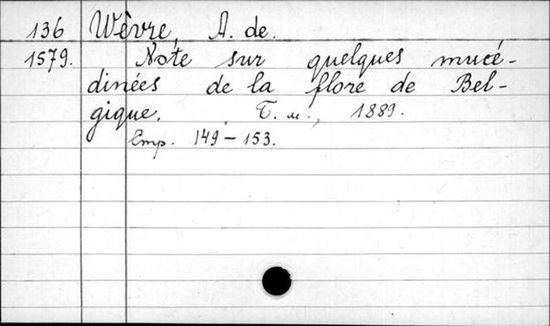 136 Wèvre, A. de.
1579. Note sur quelques mucé-
dinées de la flore de Bel-
gique. T. м., 1889.
Стр. 149-153.